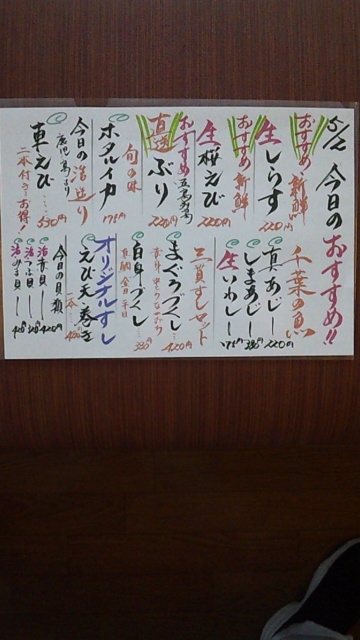 5/2 今日のおすすめ!!
おすすめ 新鮮
生しらす 220円
おすすめ 新鮮
生桜えび 220円
おすすめ
直送 ぶり 220円
旬の味
ホタルイカ 175円
今日の活造り
鹿児島より
車えび … 530円
二本付きでお得!
千葉の魚
真あじー 220円
しまあじー 280円
生いわしー 175円
三貫すしセット
まぐろづくし 420円
白身づくし 380円
オリジナルすし
えび天巻き 一本 480円
今日の貝類
活青貝ー 420円
活つぶ貝ー
活みる貝ー